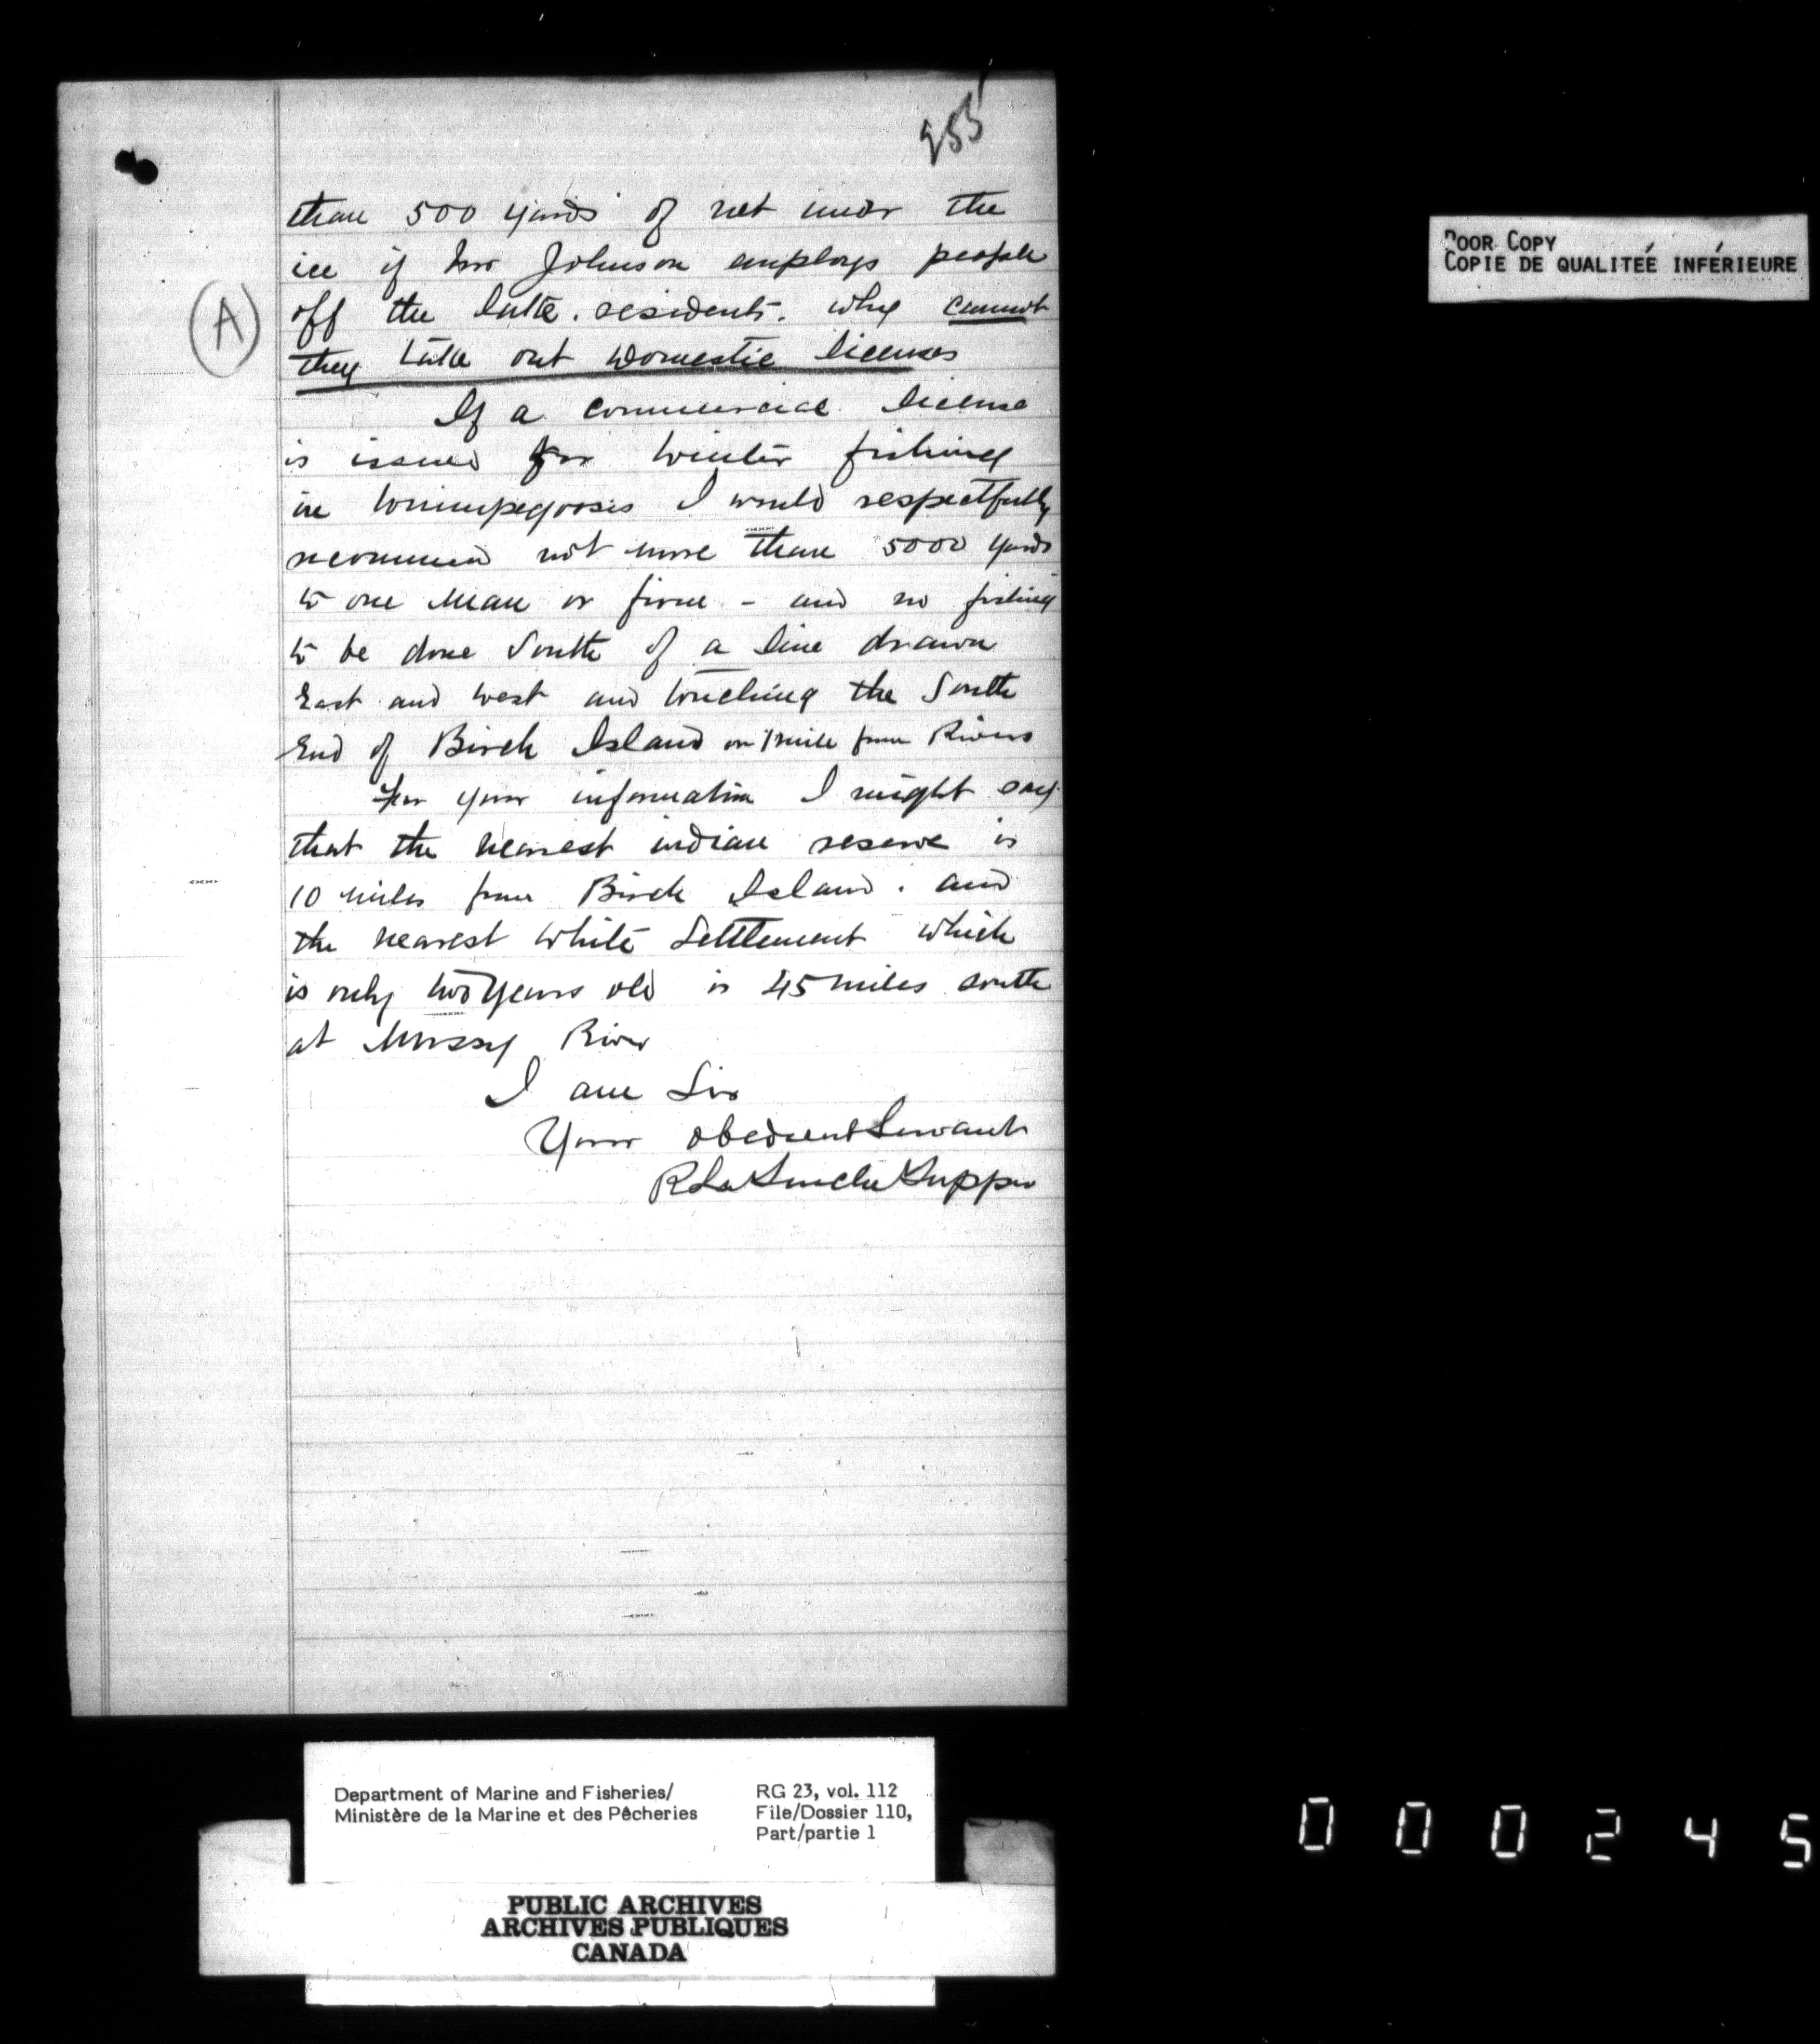 255
than 500 yards of net under the
ice if Mr Johnson employs people
off the lake. residents. why cannot
they take out Domestic licenses
(A)
If a commercial license
is issued for winter fishing
in Winnipegoosis I would respectfully
recommend not more than 5000 yards
to one man or firm - and no fishing
to be done South of a line drawn
East and West and touching the South
End of Birch Island or 1 mile from Rivers
For your information I might say
that the nearest indian reserve is
10 miles from Birch Island. and
the nearest white Settlement which
is only two years old is 45 miles south
at Mossy River
I am Sir
Your obedient Servant
R La Touche Tupper
POOR COPY
COPIE DE QUALITEÉ INFÉRIEURE
Department of Marine and Fisheries/
Ministère de la Marine et des Pêcheries
RG 23, vol. 112
File/Dossier 110,
Part/partie 1
PUBLIC ARCHIVES
ARCHIVES PUBLIQUES
CANADA
000245